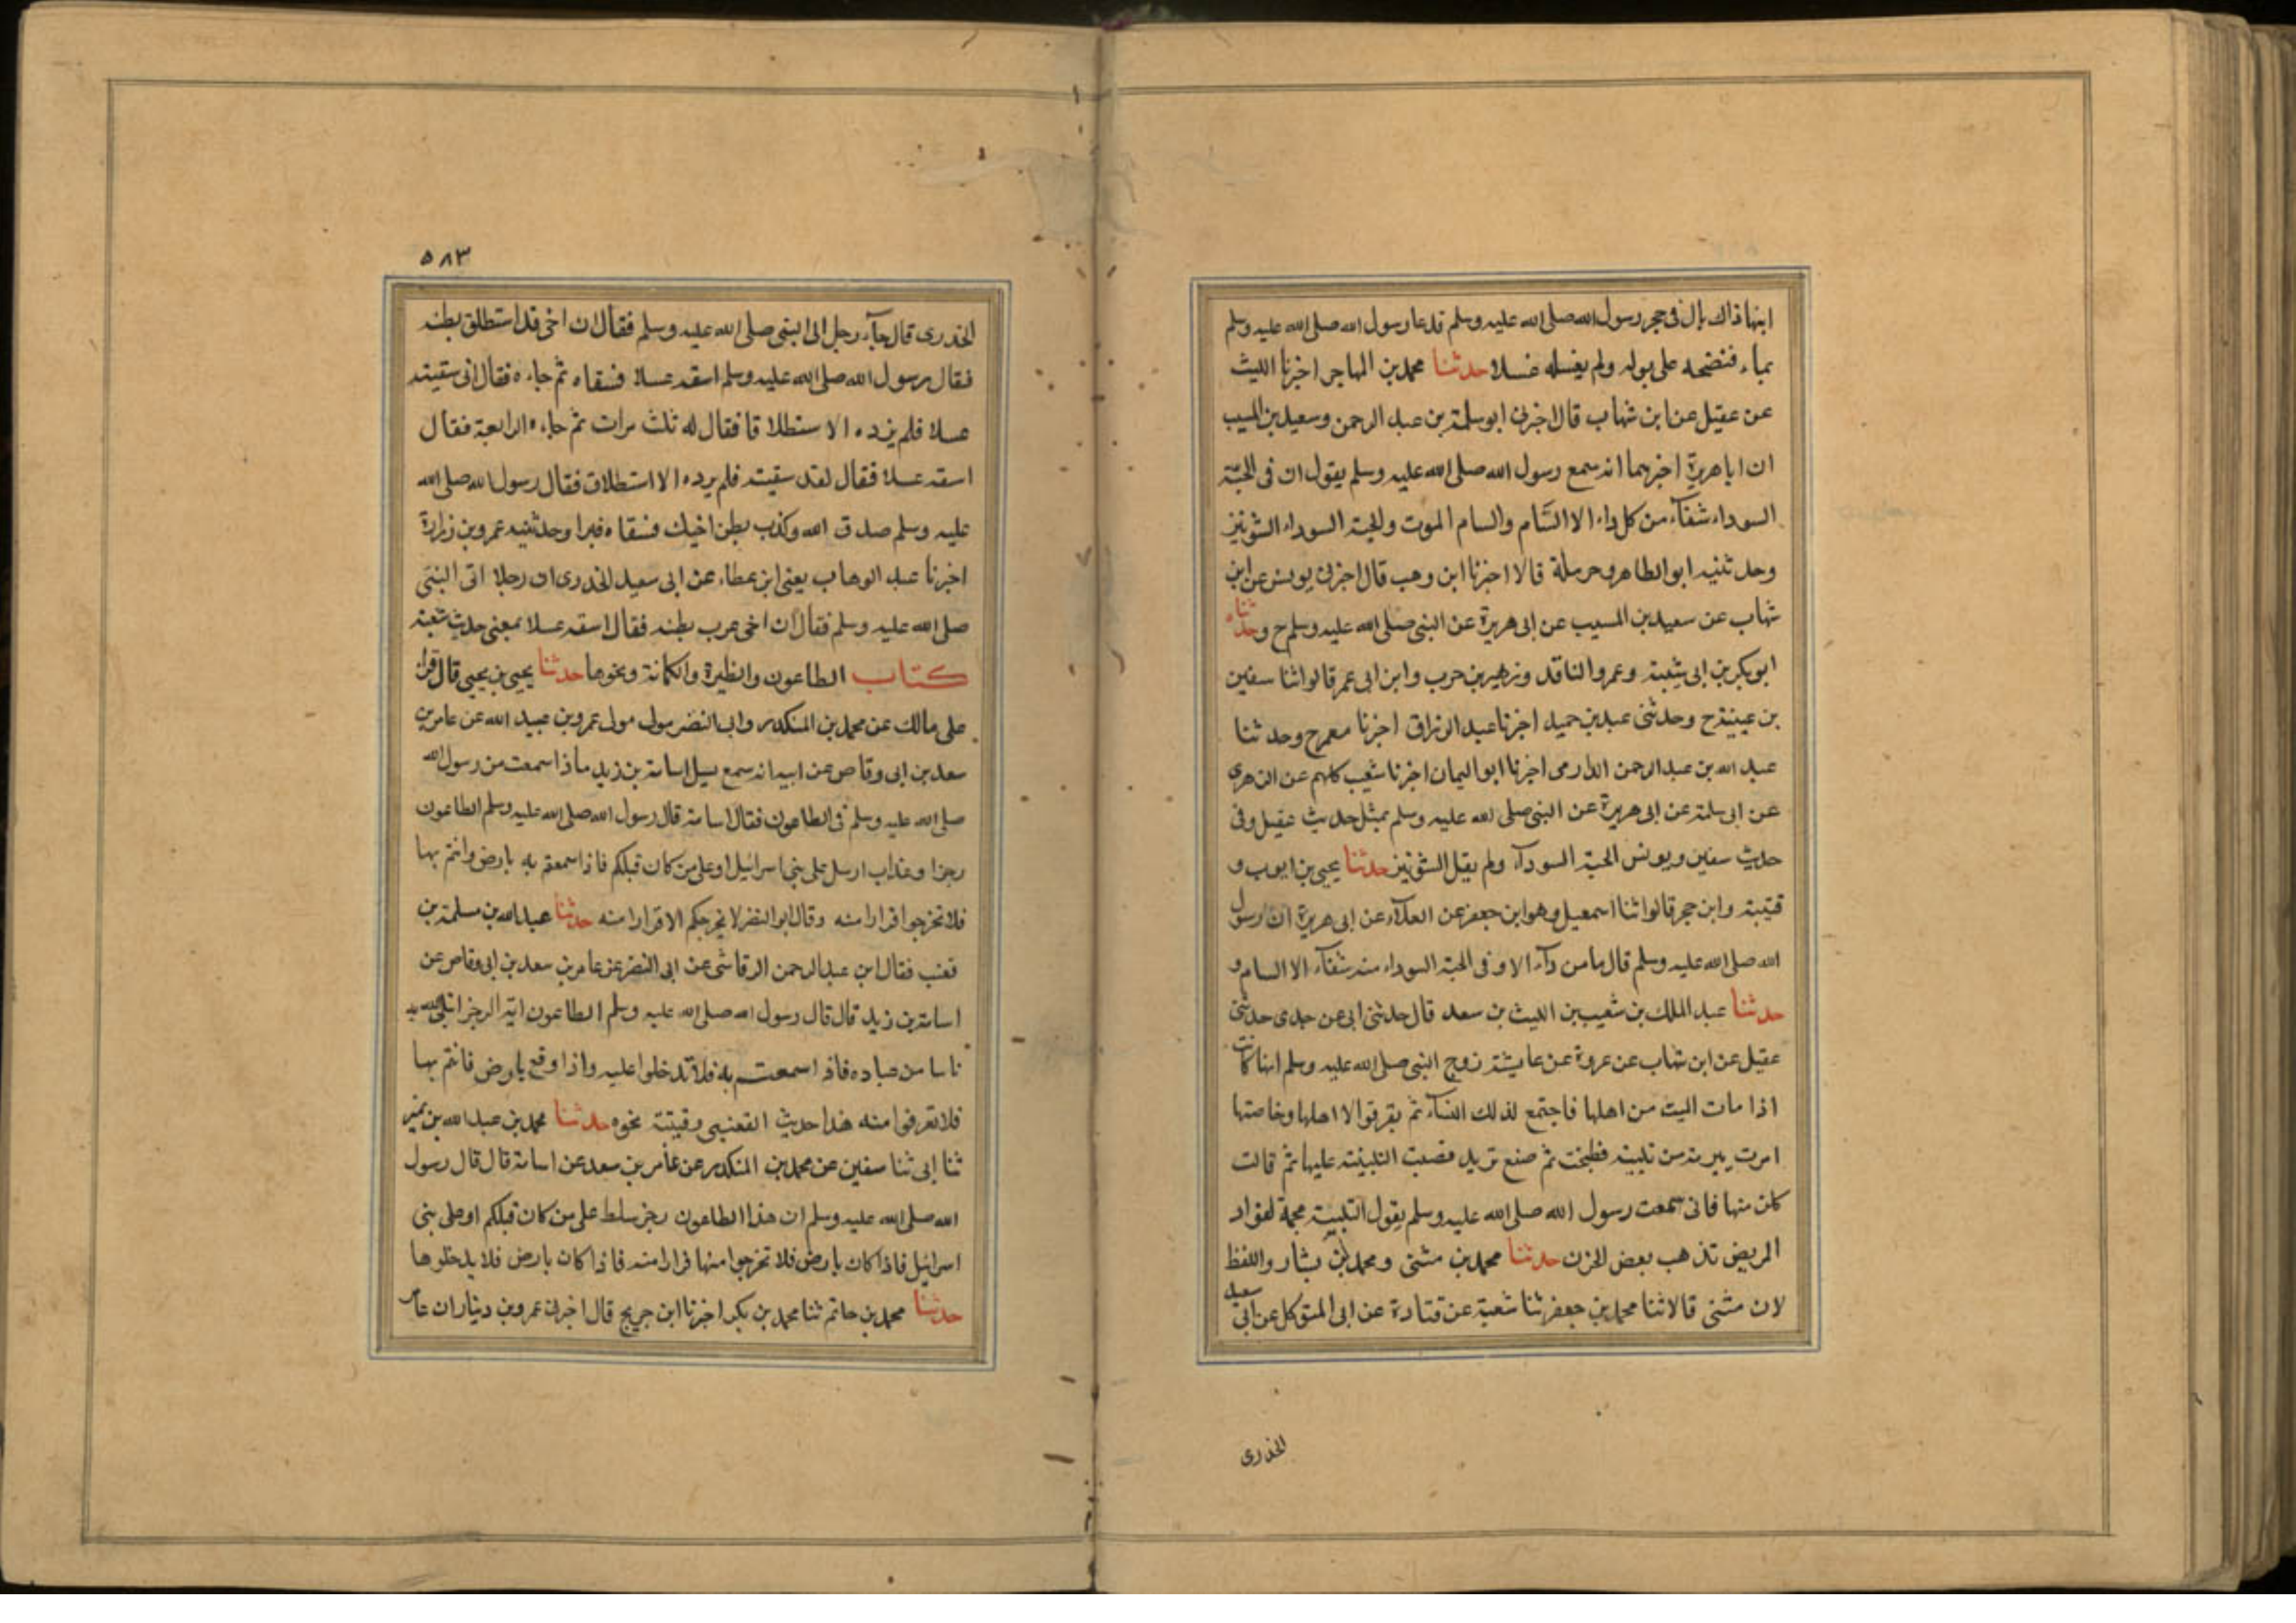 ابنها ذاك بال فى حجر رسول الله صلى الله عليه وسلم فدعا رسول الله صلى الله عليه وسلم
بماء فنضحه على بوله ولم يغسله غسلا حدثنا محمد بن المهاجر اخبرنا الليث
عن عقيل عن ابن شهاب قال اخبرنى ابو سلمة بن عبد الرحمن وسعيد بن المسيب
ان ابا هريرة اخبرهما انه سمع رسول الله صلى الله عليه وسلم يقول ان فى الحبة
السوداء شفآء من كل داء الا السَّام والسام الموت والحبة السوداء الشونيز
وحدثنيه ابو الطاهر وحرملة قالا اخبرنا ابن وهب قال اخبرنى يونس عن ابن
شهاب عن سعيد بن المسيب عن ابى هريرة عن النبى صلى الله عليه وسلم ح وحدثناه
ابو بكر بن ابى شيبة وعمرو الناقد وزهير بن حرب وابن ابى عمر قالوا ثنا سفين
بن عيينة ح وحدثنى عبد بن حميد اخبرنا عبد الرزاق اخبرنا معمر ح وحدثنا
عبد الله بن عبد الرحمن الدارمى اخبرنا ابو اليمان اخبرنا شعيب كلهم عن الزهرى
عن ابى سلمة عن ابى هريرة عن النبى صلى الله عليه وسلم بمثل حديث عقيل وفى
حديث سفين ويونس الحبة السودآء ولم يقل الشونيز حدثنا يحيى بن ايوب و
قتيبة وابن حجر قالوا ثنا اسمعيل وهو ابن جعفر عن العلآء عن ابى هريرة ان رسول
الله صلى الله عليه وسلم قال ما من دآء الا وفى الحبة السوداء منه شفآء الا السام و
حدثنا عبد الملك بن شعيب بن الليث بن سعد قال حدثنى ابى عن جدى حدثنى
عقيل عن ابن شهاب عن عروة عن عايشة زوج النبى صلى الله عليه وسلم انها كانت
اذا مات الميت من اهلها فاجتمع لذلك النسآء ثم يفرقوا الا اهلها وخاصتها
امرت ببرمة من تلبينة فطبخت ثم صنع ثريد فصبت التلبينة عليها ثم قالت
كلن منها فانى سمعت رسول الله صلى الله عليه وسلم يقول التلبينة مجمة لفؤاد
المريض تذهب بعض الحزن حدثنا محمد بن مثنى ومحمد بن بشار واللفظ
لان مثنى قالا ثنا محمد بن جعفر ثنا شعبة عن قتادة عن ابى المتوكل عن ابى سعيد
الخدرى
٥٨٣
الخدرى قال جآء رجل الى النبى صلى الله عليه وسلم فقال ان اخى قد استطلق بطنه
فقال رسول الله صلى الله عليه وسلم اسقه عسلا فسقاه ثم جاءه فقال انى سقيته
عسلا فلم يزده الا ستطلاقا فقال له ثلث مرات ثم جاءه الرابعة فقال
اسقه عسلا فقال لقد سقيته فلم يزده الا استطلاق فقال رسول الله صلى الله
عليه وسلم صدق الله وكذب بطن اخيك فسقاه فبرا وحدثنيه عمرو بن زرارة
اخبرنا عبد الوهاب يعنى ابن عطاء عن ابى سعيد الخدرى ان رجلا اتى النبى
صلى الله عليه وسلم فقال ان اخى عرب بطنه فقال اسقه عسلا بمعنى حديث شعبة
كتاب الطاعون والطيرة والكهانة ونحوها حدثنا يحيى بن يحيى قال قرات
على مالك عن محمد بن المنكدر وابى النضر مولى مولى عمرو بن عبيد الله عن عامر بن
سعد بن ابى وقاص عن ابيه انه سمع يسيل اسامة بن زيد ماذا سمعت من رسول الله
صلى الله عليه وسلم فى الطاعون فقال اسامة قال رسول الله صلى الله عليه وسلم الطاعون
رجزا وعذاب ارسل على بنى اسرائيل او على من كان قبلكم فاذا سمعتم به بارض وانتم بها
فلا تخرجوا فرارا منه وقال ابو النضر لا يخرجكم الا فرارا منه حدثنا عبد الله بن مسلمة بن
قعنب فقال ابن عبد الرحمن الرقاشى عن ابى النضر عن عامر بن سعد بن ابى وقاص عن
اسامة بن زيد قال قال رسول الله صلى الله عليه وسلم الطاعون اية الرجز ابتلى الله به
ناسا من عباده فاذا سمعتم به فلا تدخلوا عليه واذا وقع بارض فانتم بها
فلا تفرقوا منه هذا حديث القعنبى وقتيبة نحوه حدثنا محمد بن عبد الله بن نمير
ثنا ابى ثنا سفين عن محمد بن المنكدر عن عامر بن سعد عن اسامة قال قال رسول
الله صلى الله عليه وسلم ان هذا الطاعون رجز سلط على من كان قبلكم او على بنى
اسرائيل فاذا كان بارض فلا تخرجوا منها فرارا منه فاذا كان بارض فلا يدخلوها
حدثنا محمد بن حاتم ثنا محمد بن بكر اخبرنا ابن جريج قال اخبرنى عمرو بن دينار ان عامر